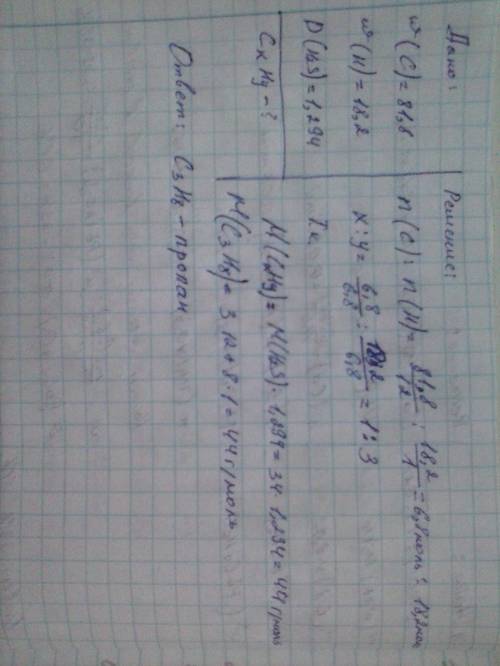 Дано:
w(C)=81,8
w(H)=18,2
D(H₂S)=1,294
CxHy-?
Решение:
n(C):n(H)= 81,8/12 : 18,2/1 =6,8моль: 18,2мол
x:y= 6,8/6,8 : 18,2/6,8 =1:3
M(CxHy)=M(H₂S)·1,294=34·1,294=44г/моль
M(C₃H₈)=3·12+8·1=44г/моль
Ответ: C₃H₈-пропан